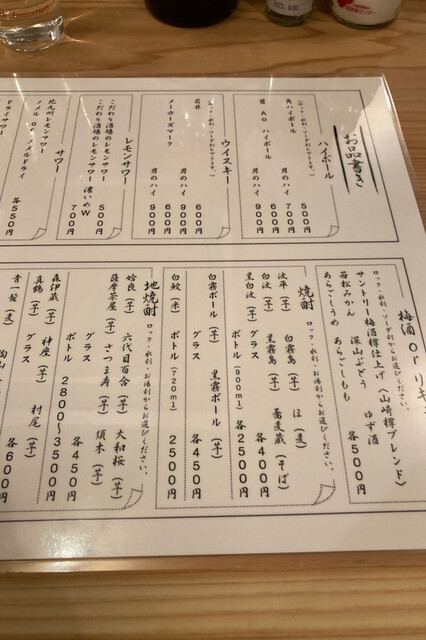 お品書き
ハイボール
(ロック・水割・ソーダ割もできます。)
角ハイボール 500円
男のハイ 700円
蔵 Ao ハイボール 600円
男のハイ 900円
ウイスキー
(ロック・水割・ソーダ割もできます。)
岩井 600円
男のハイ 900円
メーカーズマーク 600円
男のハイ 900円
レモンサワー
こだわり酒場のレモンサワー 500円
こだわり酒場のレモンサワー 濃いめW 700円
サワー
北九州レモンサワー
ノメル or ノメルドライ
ドライサワー 各550円
梅酒 or リキュ
ロック・水割・ソーダ割からお選びください。
サントリー梅酒樽仕上げ〈山崎樽ブレンド〉
若松みかん 深山ぶどう ゆず酒
あらごしうめ あらごしもも 各500円
焼酎
ロック・水割・お湯割からお選びください。
波平(芋) 白霧島(芋) ほ(麦)
白波(芋) 黒霧島(芋) 蕎麦蔵(そば)
黒白波(芋) グラス 各400円
ボトル(900ml) 各2500円
白霧ボール(芋) 黒霧ボール(芋)
グラス 各450円
白鮫(米) ボトル(720ml) 2500円
地焼酎
ロック・水割・お湯割からお選びください。
姶良(芋) 六代目百合(芋) 大和桜(芋)
薩摩茶屋(芋) さつま寿(芋) 須木(芋)
グラス 各450円
ボトル 2800〜3500円
森伊蔵(芋) 神座(芋) 村尾(芋)
真鶴(芋) グラス 各600円
青一髪(麦) 陶山